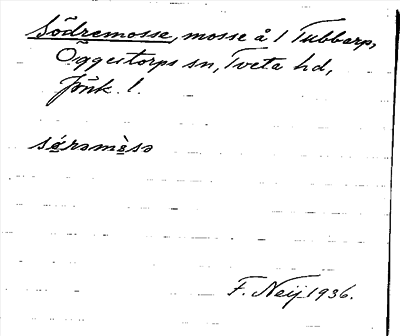 Södremosse, mosse å 1 Tubbarp,
Öggestorps sn, Tveta hd,
Jönk. l.
sǿrəmòsə
F. Neij 1936.